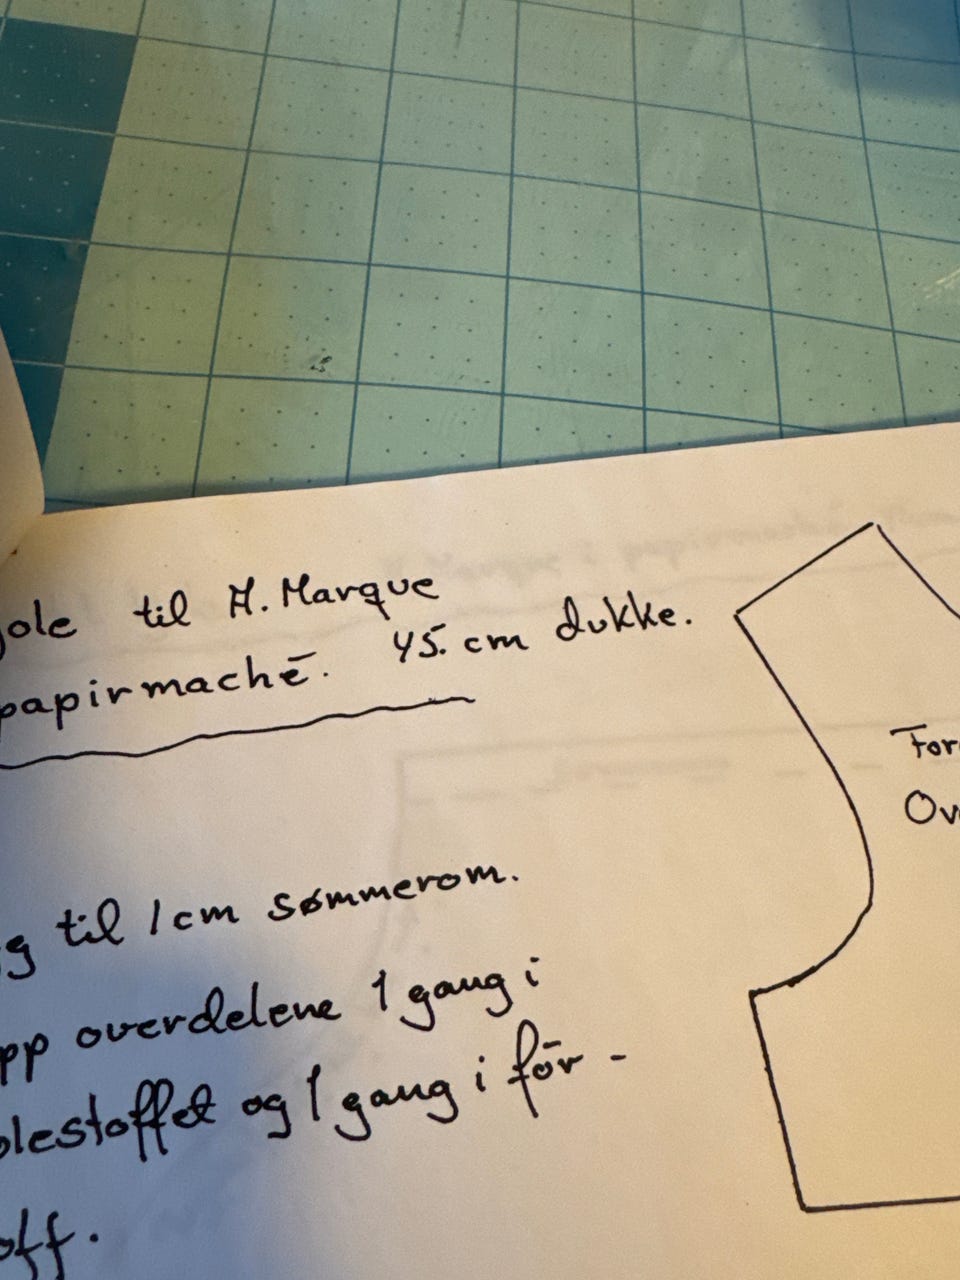 jole til A. Marque
papirmaché. 45. cm dukke.
g til 1 cm sømmerom.
pp overdelene 1 gang i
olestoffet og 1 gang i fór -
off.
For
Ov